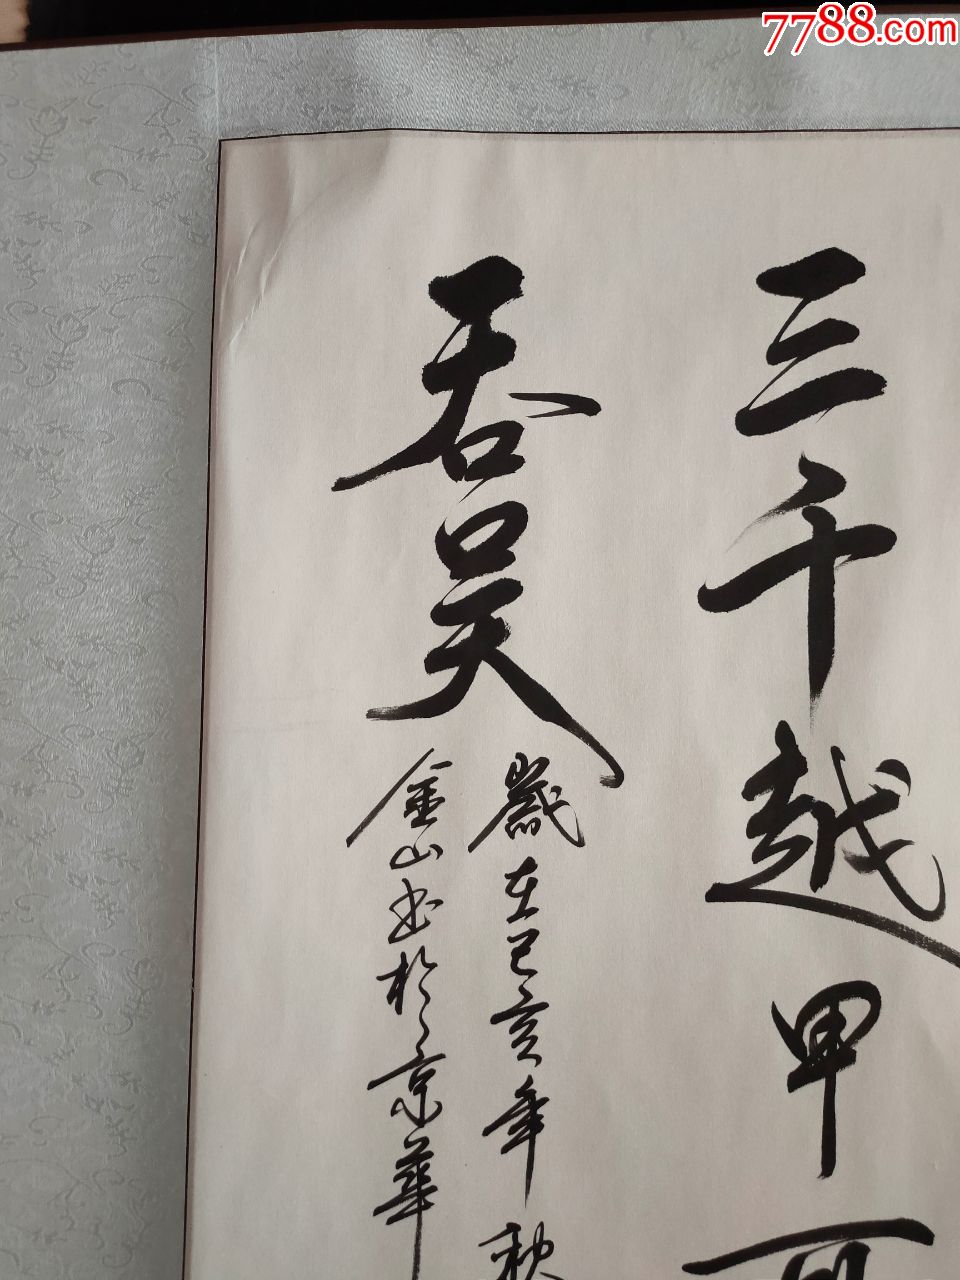 7788.com
三千越甲可
吞吴
歲在己亥年秋
金山书於京華